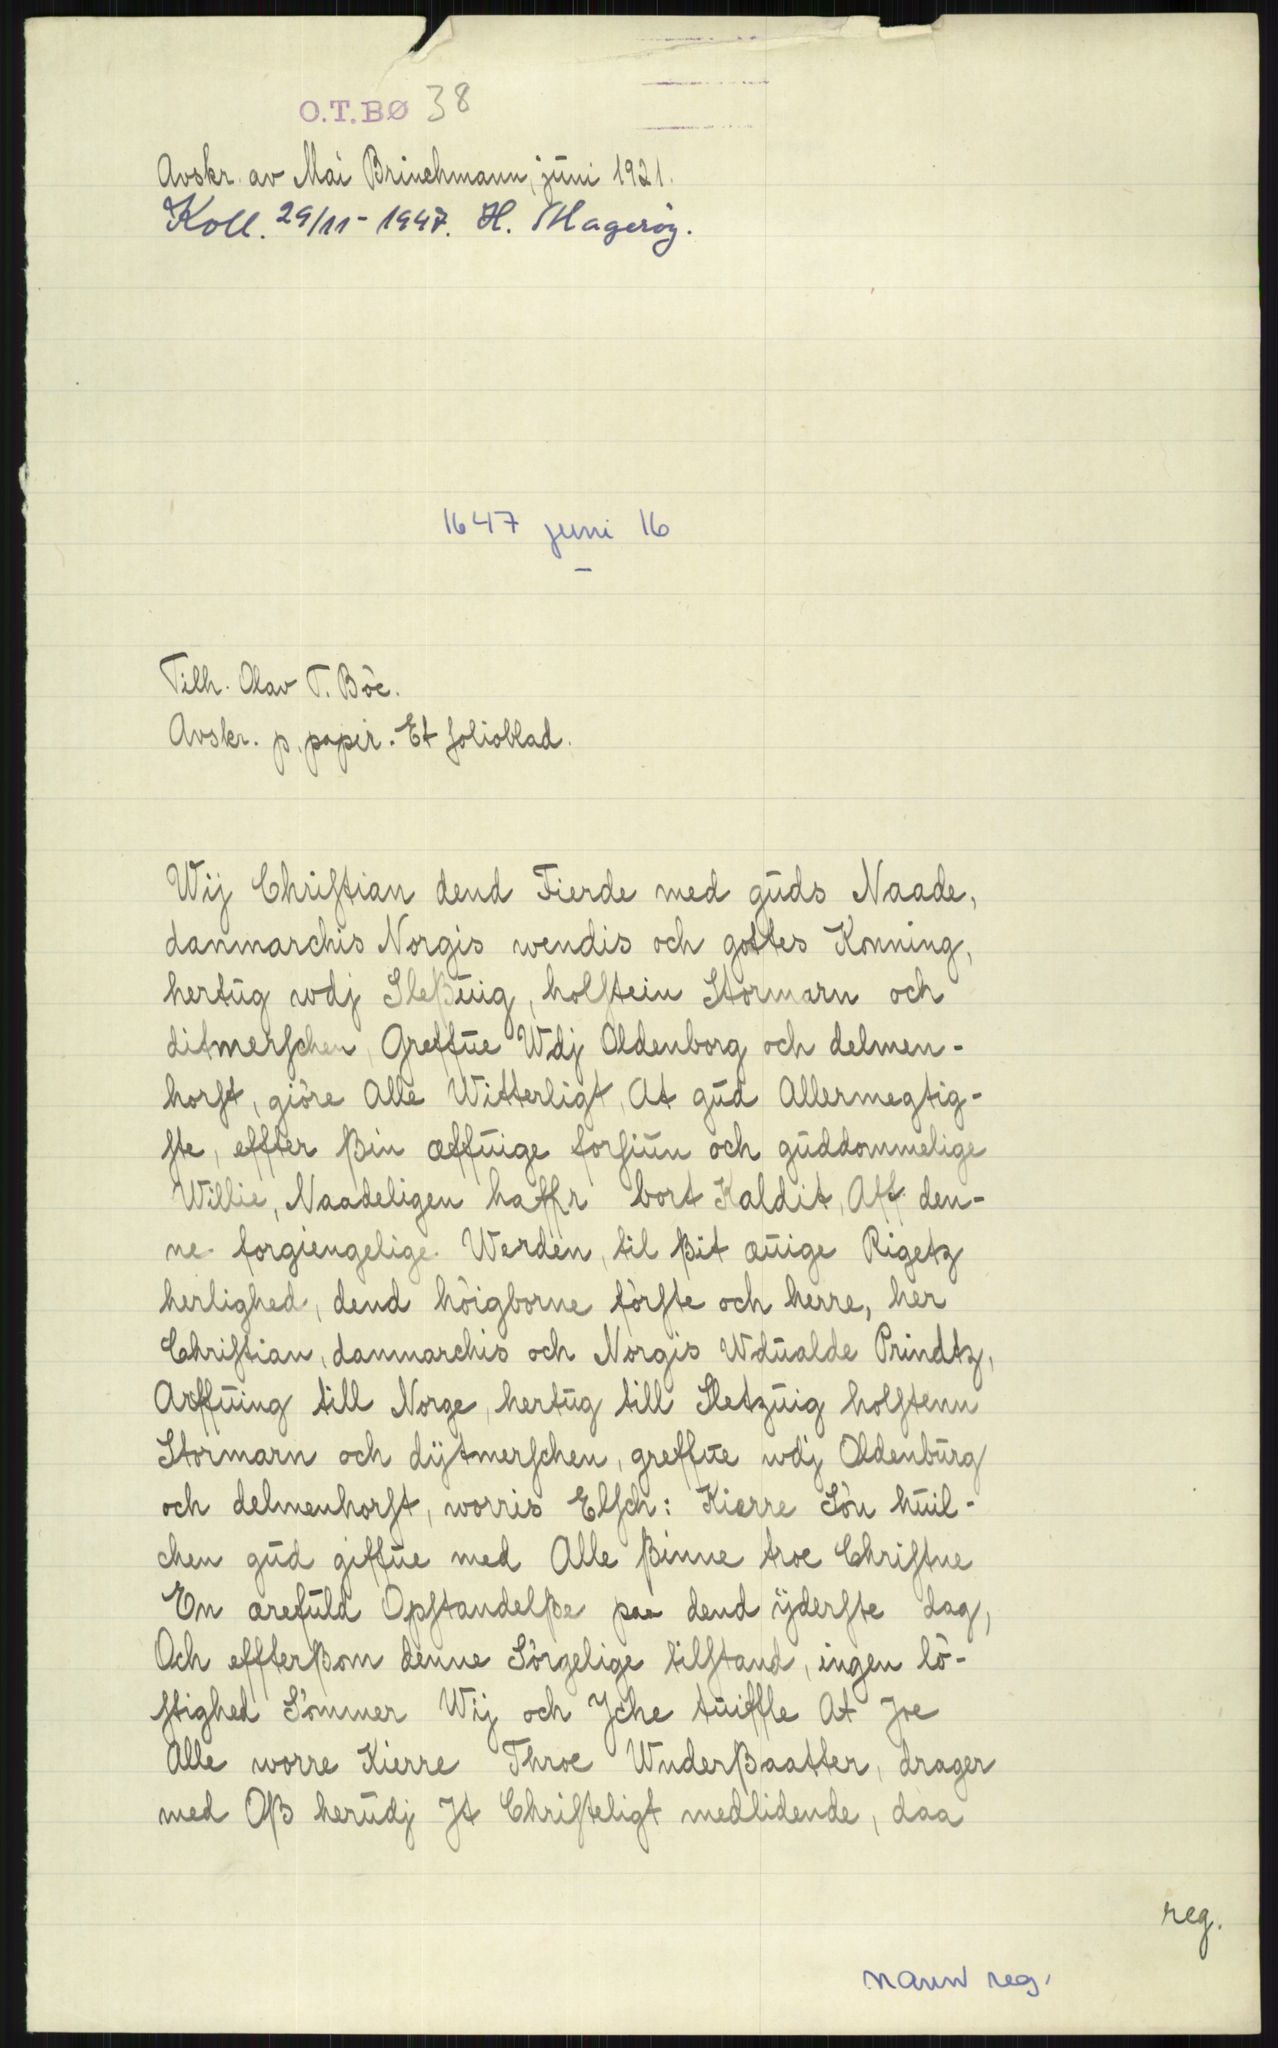 O.T.BØ 38
Avskr. av Mai Brinchmann, juni 1921.
Koll. 29/11-1947. H. Magerøy.
1647 juni 16
Tilh. Olav T. Böe.
Avskr. p. papir. Et folioblad.
Wij Chriſtian dend Fierde med guds Naade,
danmarchis Norgis wendis och gottes Konning,
hertug wdj Sleßuig, holſtein Stormarn och
ditmerſchen, Greffue Wdj Oldenborg och delmen-
horſt, giöre Alle Witterligt, At gud Allermegtig-
ſte, effter ßin æffuige forſiun och guddommelige
Willie, Naadeligen haffr bort Kaldit, Aff den-
ne forgiengelige Werden, til ßit æuige Rigetz
herlighed, dend höigborne förſte och herre, her
Chriſtian, danmarchis och Norgis Wdualde Prindtz,
Arffuing till Norge, hertug till Sletzuig holſtenn
Stormarn och dÿtmerſchen, greffue wdj Oldenburg
och delmenhorſt, worris Elſch: Kierre Sön huil-
chen gud giffue med Alle ßinne troe Chriſtne
En ærefuld Opſtandelße paa dend ÿderſte dag,
Och effterßom denne Sörgelige tilſtand, ingen lö-
ſtighed Sömmer Wij och Jche tuiffle At Joe
Alle worre Kierre Throe Wnderßaatter, drager
med Oß herudj Jt Chriſteligt medlidende, daa
reg.
navn reg.